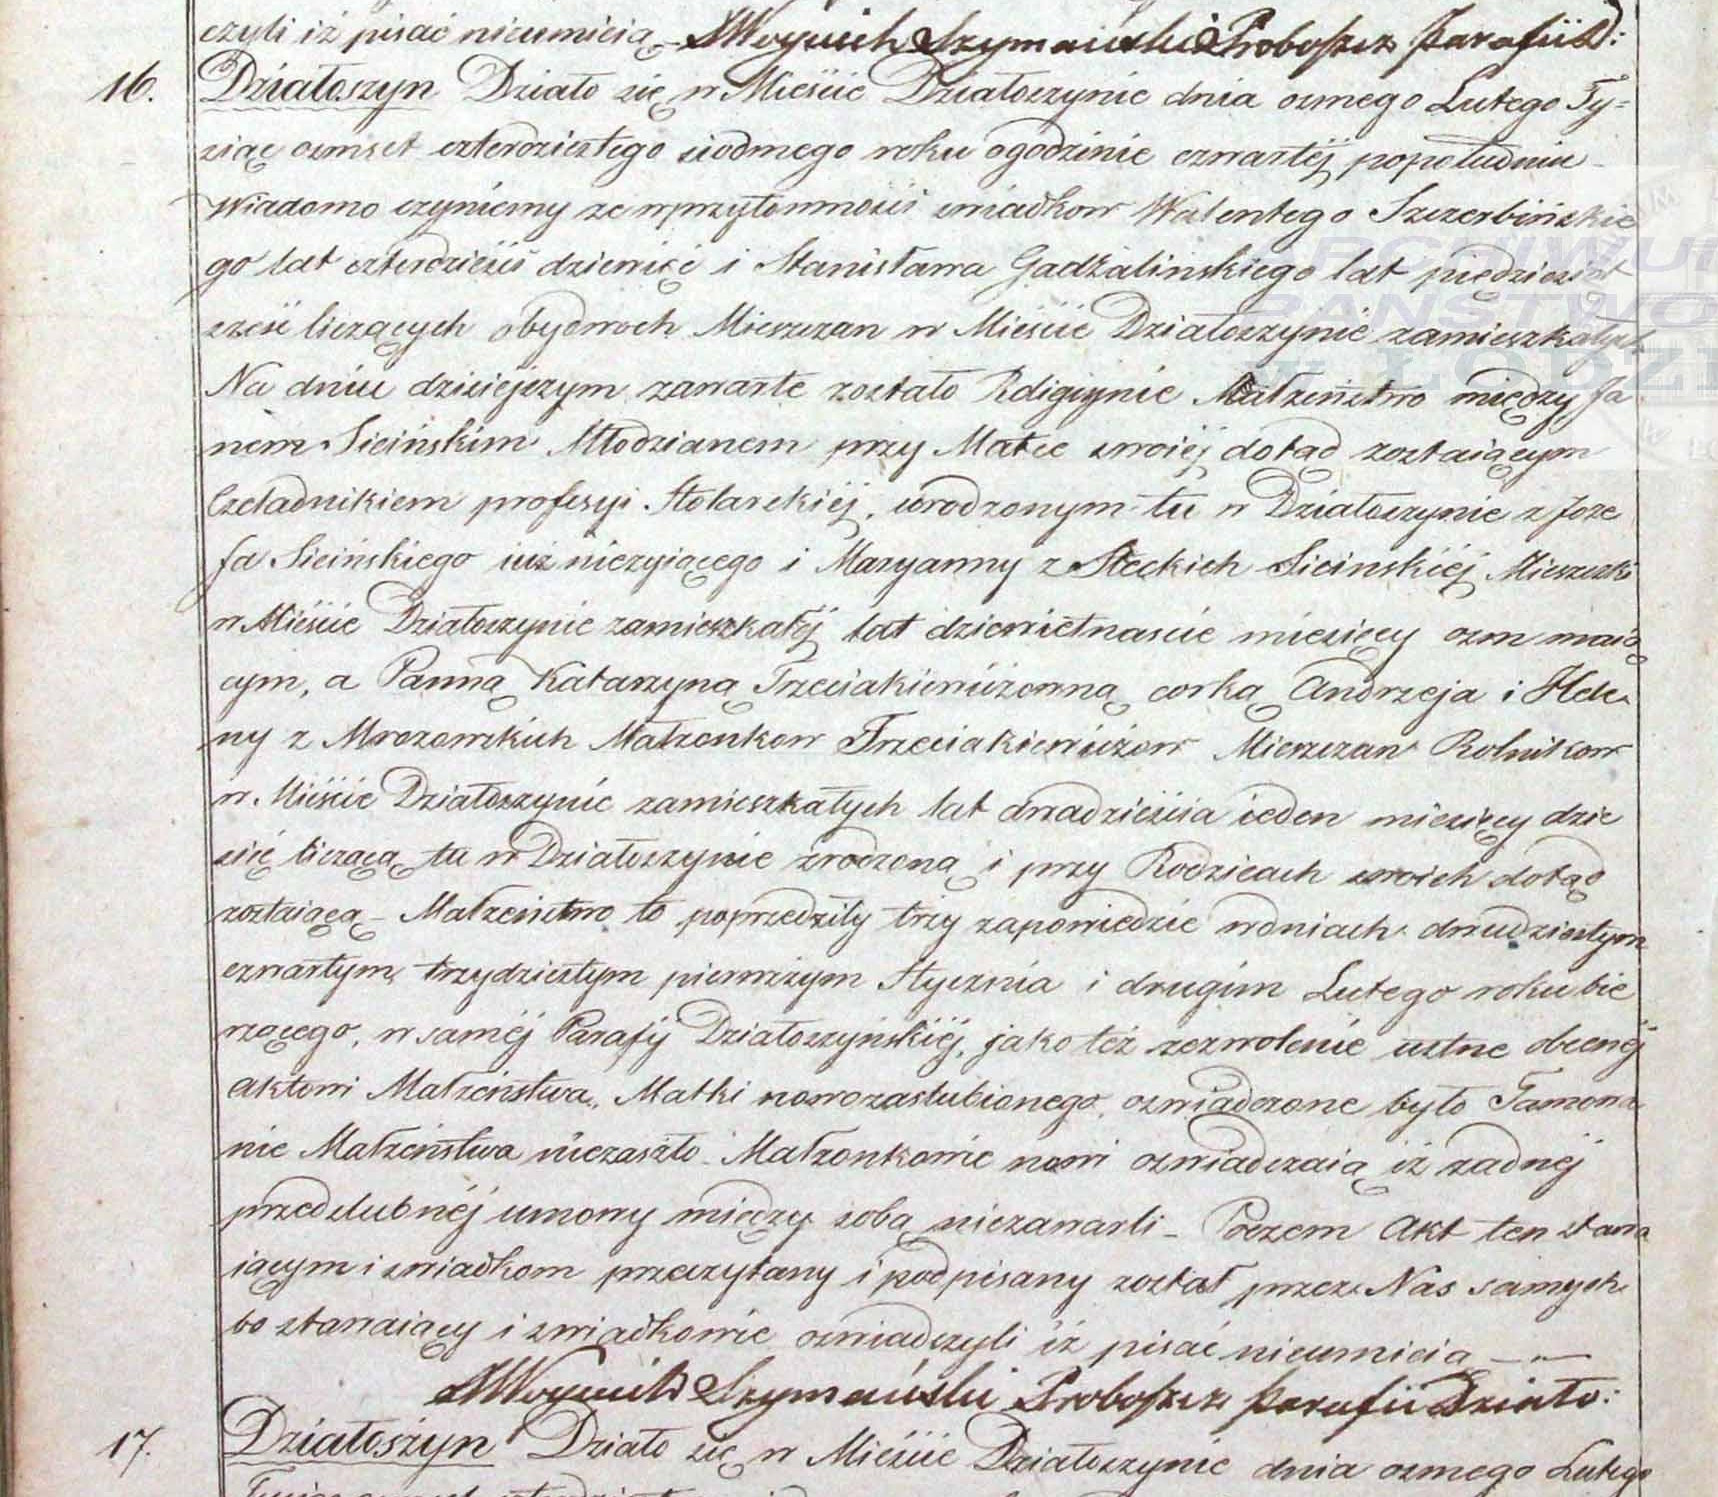 czyli iż pisać nieumieią X Woyciech Szymański Proboszcz Parafii D:
16. Działoszyn Działo się w Mieście Działoszynie dnia osmego Lutego Ty=
siąc osmset czterdziestego siodmego roku ogodzinie czwartéj popołudniu
Wiadomo czyniemy ze wprzytomności swiadkow Walentego Szczerbińskie
go lat czterdzieści dziewięć i Stanisława Gadżalinskiego lat piędziesiąt
sześć liczących obydwoch Mieszczan w Mieście Działoszynie zamieszkałych
Na dniu dzisiejszym zawarte zostało Religijnie Małzeństwo między Ja
nem Sicińskim Młodzianem przy Matce swoiéj dotąd zostaiącym
Czeladnikiem professyi Stolarskiéj, urodzonym tu w Działoszynie z Joze
fa Sicińskiego iuż nieżyiącego i Maryanny z Steckich Sicinskiéj Mieszczki
w Mieście Działoszynie zamieszkałéj lat dziewietnaście miesięcy osm maią
cym, a Panną Katarzyną Trzeciakiewiczowną corką Andrzeja i Hele
ny z Mrozowskich Małzonkow Trzeciakiewiczow Mieszczan Rolnikow
w Mieście Działoszynie zamieszkałych lat dwadzieścia ieden miesięcy dzie
sięć liczącą tu w Działoszynie zrodzoną i przy Rodzicach swoich dotąd
zostaiącą – Małzeństwo to poprzedziły trzy zapowiedzie wdniach dwudziestym
czwartym, trzydziestym pierwszym Stycznia i drugim Lutego roku bie
rzącego, w saméj Parafij Działoszyńskiéj, jako też zezwolenie ustne obecnéj
aktowi Małzeństwa, Matki nowozaslubionego, oswiadczone było Tamowa
nie Małzeństwa niezaszło. Małzonkowie nowi oswiadczaią iż zadnéj
przedslubnéj umowy między sobą niezawarli – Poczem Akt ten stawa
iącym i swiadkom przeczytany i podpisany został przez Nas samych
bo stawaiący i swiadkowie oswiadczyli iż pisać nieumieią
X Woyciech Szymański Proboszcz Parafii Działo:
17. Działoszyn Działo się w Mieście Działoszynie dnia osmego Lutego
ARCHIWUM
PAŃSTWO
W ŁODZI